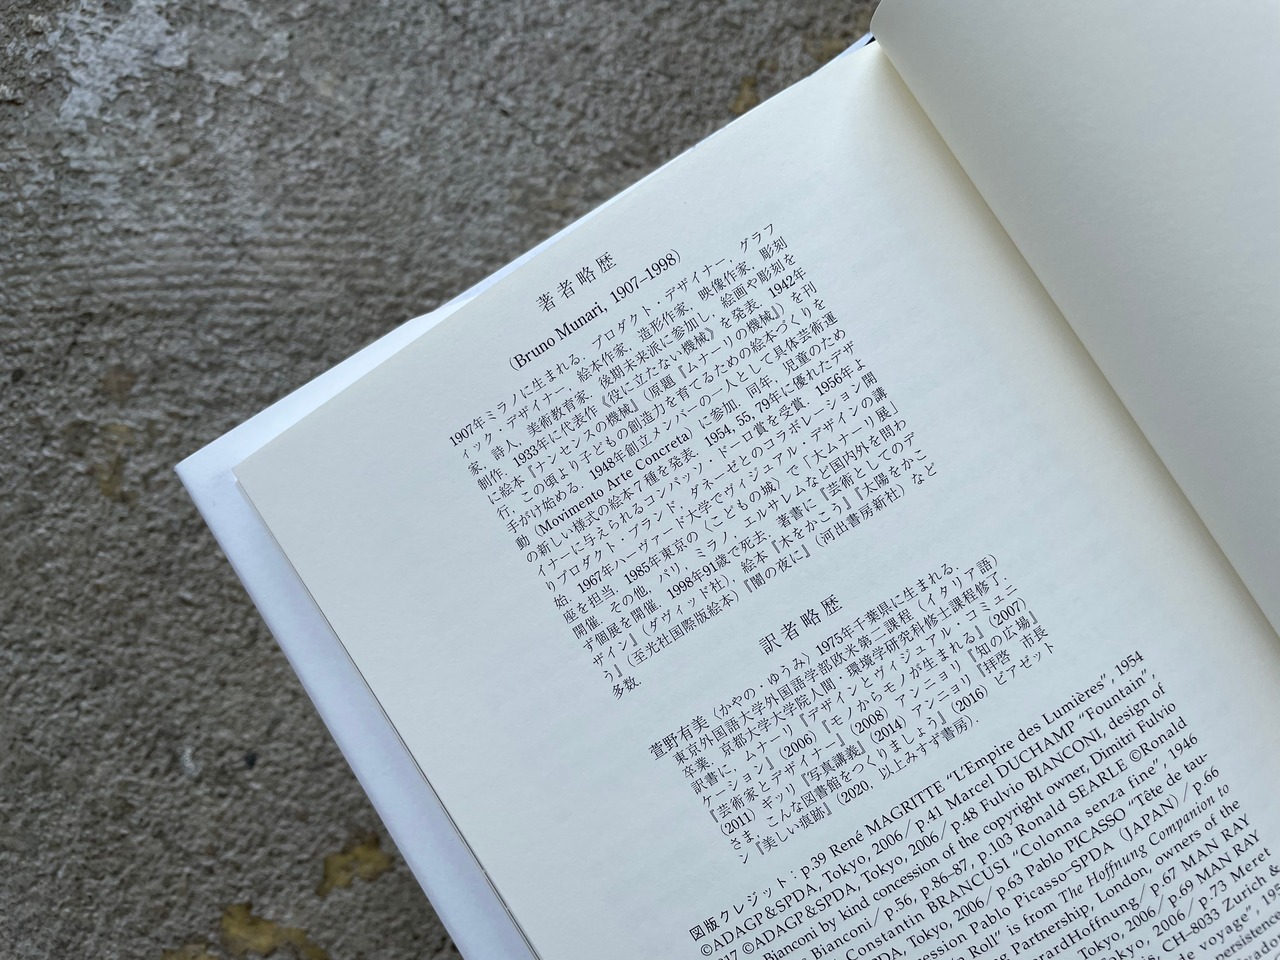 著者略歴
(Bruno Munari, 1907–1998)
1907年ミラノに生まれる．プロダクト・デザイナー，グラフ
ィック・デザイナー，絵本作家，造形作家，映像作家，彫刻
家，詩人，美術教育家．後期未来派に参加し，絵画や彫刻を
創作，1933年に代表作《役に立たない機械》を発表．1942年
に絵本『ナンセンスの機械』（原題『ムナーリの機械』）を刊
行．この頃より子どもの創造力を育てるための絵本づくりを
手がけ始める．1948年創立メンバーの一人として具体芸術運
動（Movimento Arte Concreta）に参加．同年，児童のため
の新しい様式の絵本7種を発表．1954, 55, 79年に優れたデザ
イナーに与えられるコンパッソ・ドーロ賞を受賞．1956年よ
りプロダクト・ブランド，ダネーゼとのコラボレーション開
始．1967年ハーヴァード大学でヴィジュアル・デザインの講
座を担当．1985年東京の〈こどもの城〉で「大ムナーリ展」
開催．その他，パリ，ミラノ，エルサレムなど国内外を問わ
ず個展を開催．1998年91歳で死去．著書に『芸術としてのデ
ザイン』（ダヴィッド社），絵本『木をかこう』『太陽をかこ
う』（至光社国際版絵本）『闇の夜に』（河出書房新社）など
多数
訳者略歴
萱野有美〈かやの・ゆうみ〉1975年千葉県に生まれる．
東京外国語大学外国語学部欧米第二課程（イタリア語）
卒業．京都大学大学院人間・環境学研究科修士課程修了．
訳書に，ムナーリ『デザインとヴィジュアル・コミュニ
ケーション』（2006）『モノからモノが生まれる』（2007）
『芸術家とデザイナー』（2008）アンニョリ『知の広場』
（2011）ギッリ『写真講義』（2014）アンニョリ『拝啓 市長
さま，こんな図書館をつくりましょう』（2016）ピアゼット
ン『美しい痕跡』（2020，以上みすず書房）．
図版クレジット：p.39 René MAGRITTE “L’Empire des Lumières”, 1954
©ADAGP&SPDA, Tokyo, 2006／p.41 Marcel DUCHAMP “Fountain”,
©ADAGP&SPDA, Tokyo, 2006／p.48 Fulvio BIANCONI, design of
Bianconi by kind concession of the copyright owner, Dimitri Fulvio
Bianconi／p.56, p.86–87, p.103 Ronald SEARLE ©Ronald
Constantin BRANCUSI “Colonna senza fine”, 1946
Tokyo, 2006／p.63 Pablo PICASSO “Tête de tau-
Succession Pablo Picasso-SPDA (JAPAN)／p.66
Roll” is from The Hoffnung Companion to
Partnership, London, owners of the
Hoffnung／p.67 MAN RAY
Tokyo, 2006／p.69 MAN RAY
Tokyo, 2006／p.73 Meret
CH-8033 Zurich &
de voyage”,
persistence